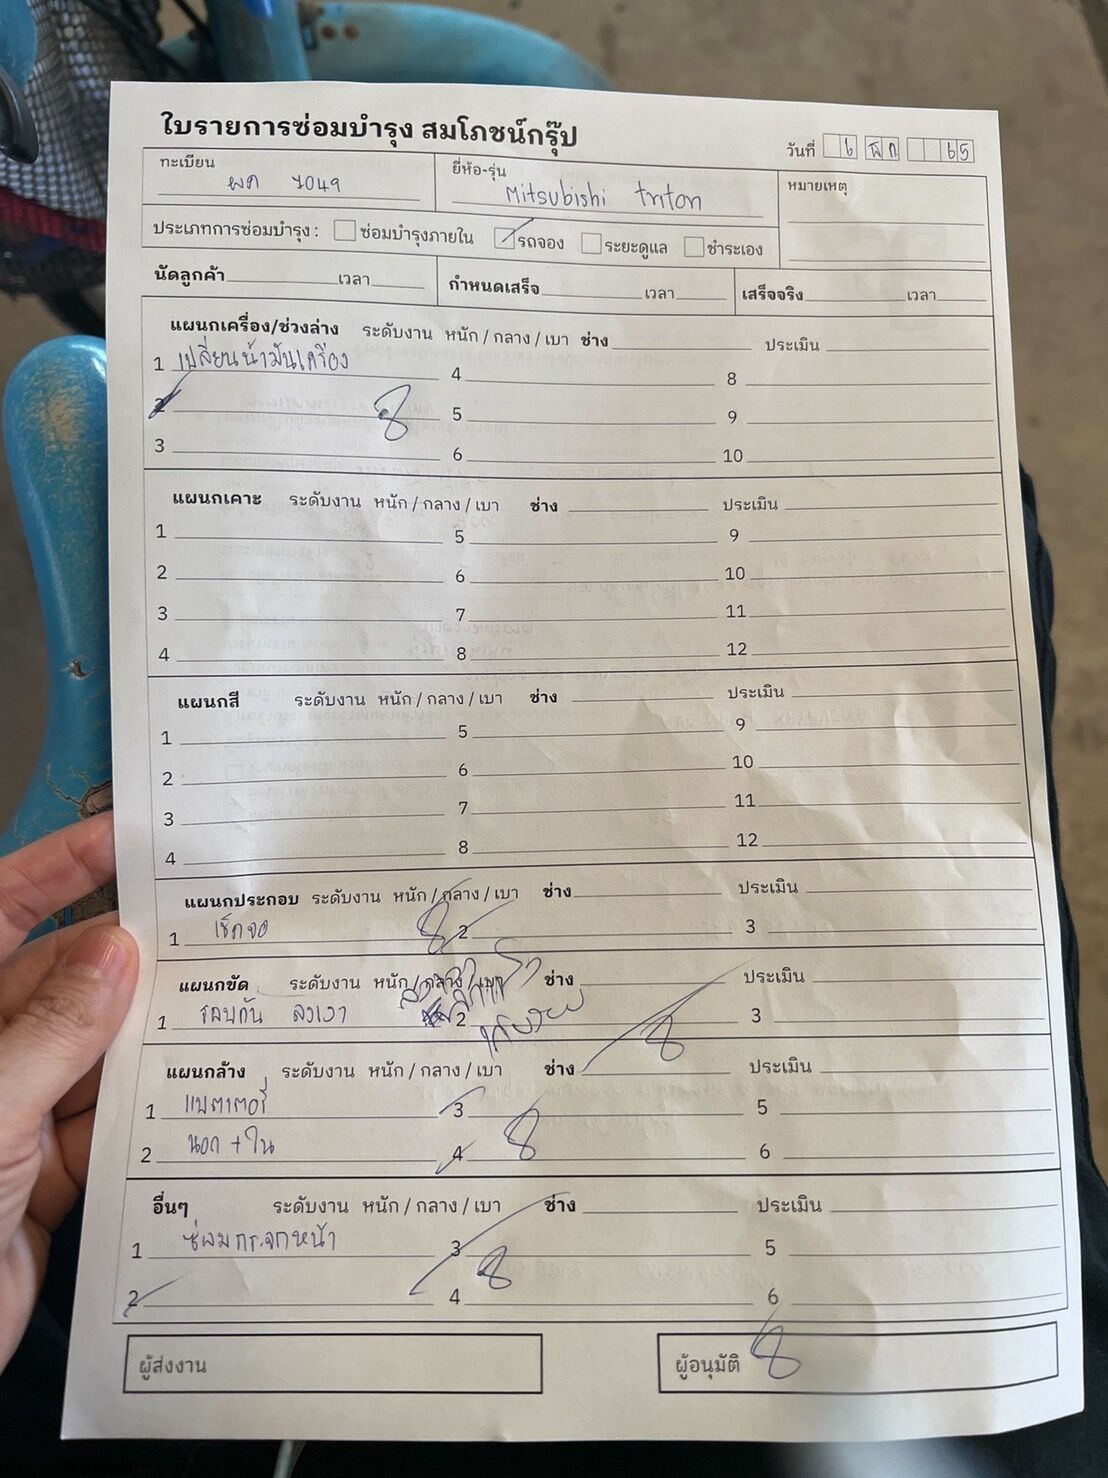 ใบรายการซ่อมบำรุง สมโภชน์กรุ๊ป
วันที่ 6 พก 65
ทะเบียน ผก 7049
ยี่ห้อ-รุ่น Mitsubishi triton
หมายเหตุ
ประเภทการซ่อมบำรุง : ซ่อมบำรุงภายใน รถจอง ระยะดูแล ชำระเอง
นัดลูกค้า เวลา กำหนดเสร็จ เวลา เสร็จจริง เวลา
แผนกเครื่อง/ช่วงล่าง ระดับงาน หนัก / กลาง / เบา ช่าง ประเมิน
1 เปลี่ยนน้ำมันเครื่อง 4 8
2 5 9
3 6 10
แผนกเคาะ ระดับงาน หนัก / กลาง / เบา ช่าง ประเมิน
1 5 9
2 6 10
3 7 11
4 8 12
แผนกสี ระดับงาน หนัก / กลาง / เบา ช่าง ประเมิน
1 5 9
2 6 10
3 7 11
4 8 12
แผนกประกอบ ระดับงาน หนัก / กลาง / เบา ช่าง ประเมิน
1 เช็คจอ 2 3
แผนกขัด ระดับงาน หนัก / กลาง / เบา ช่าง ประเมิน
1 รอบคัน ลงเงา 2 3
แผนกล้าง ระดับงาน หนัก / กลาง / เบา ช่าง ประเมิน
1 แบตเตอรี่ 3 5
2 นอก + ใน 4 6
อื่นๆ ระดับงาน หนัก / กลาง / เบา ช่าง ประเมิน
1 ซ่อมกระจกหน้า 3 5
2 4 6
ผู้ส่งงาน ผู้อนุมัติ